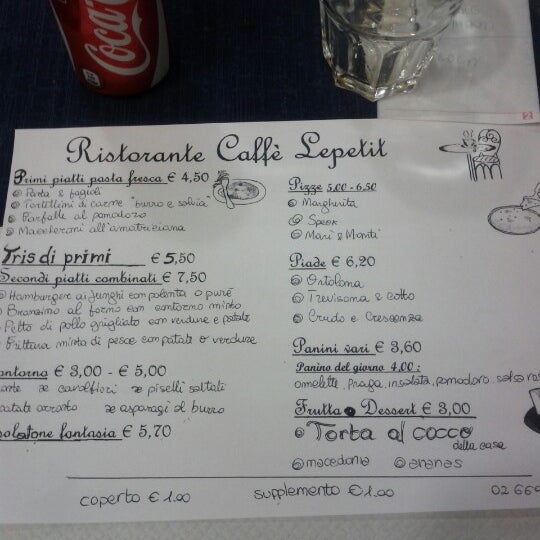 Coca
83
Ristorante Caffè Lepetit
Primi piatti pasta fresca € 4,50
Pasta & fagioli
Tortellini di carne "burro e salvia"
Farfalle al pomodoro
Maccheroni all'amatriciana
Tris di primi € 5,50
Secondi piatti combinati € 7,50
Hamburger ai funghi con polenta o purè
Branzino al forno con contorno misto
Petto di pollo grigliato con verdure e patate
Frittura mista di pesce con patate o verdure
ontorno € 3,00 - € 5,00
cavolfiori piselli saltati
patate arrosto asparagi al burro
salatone fantasia € 5,70
Pizze 5,00 - 6,50
Margherita
Speck
Mari & Monti
Piade € 6,20
Ortolana
Trevisana & cotto
Crudo e Crescenza
Panini vari € 3,60
Panino del giorno 4,00:
omelette, praga, insalata, pomodoro, salsa
Frutta Dessert € 3,00
Torta al cocco
della casa
macedonia ananas
coperto € 1.00 supplemento € 1.00 02 669